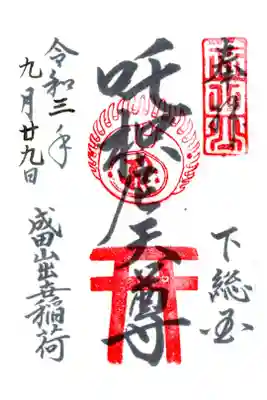 奉拝
下総国
吒枳尼天尊
令和三年
九月廿九日
成田山出世稲荷